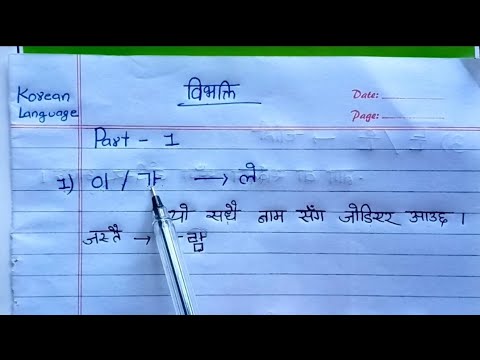 Korean
Language
विभक्ति
Date:
Page:
Part - 1
1) 이 / 가 → ले
यो सधै नाम सँग जोडिएर आउछ ।
जस्तै →